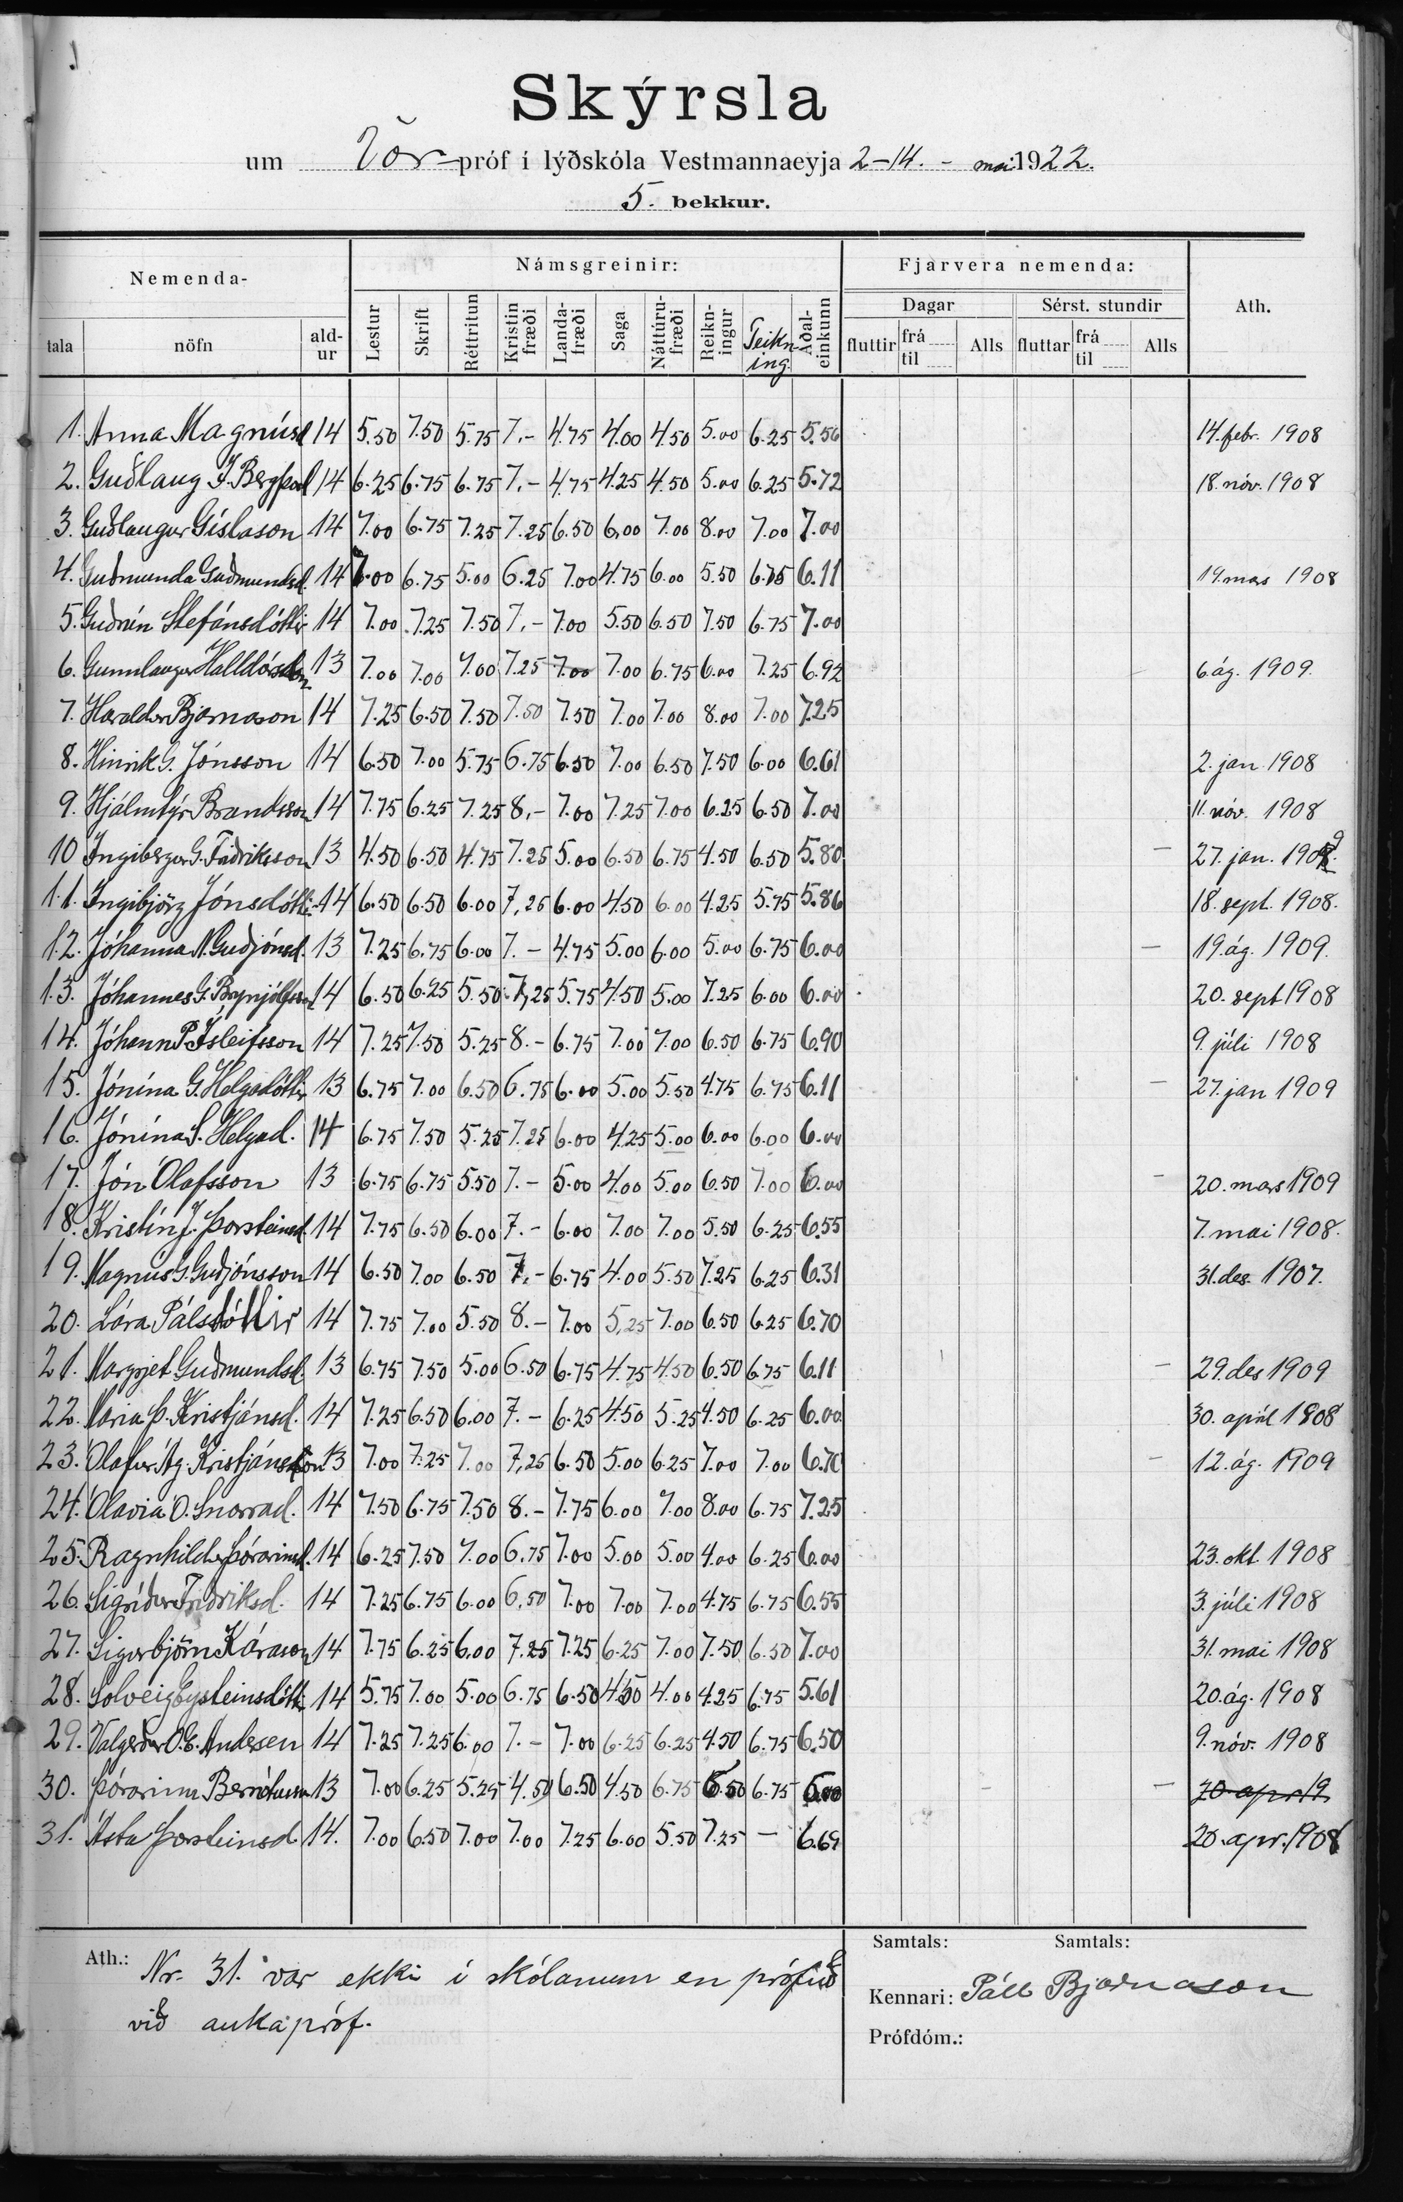 Skýrsla
um Vor-próf í lýðskóla Vestmannaeyja 2-14. - mai 1922.
5. bekkur.
Nemenda- Námsgreinir: Fjarvera nemenda: Ath.
Dagar Sérst. stundir
tala nöfn ald-ur Lestur Skrift Réttritun Kristin fræði Landa-fræði Saga Náttúru-fræði Reikn-ingur Teikn-ing. Aðal-einkunn fluttir frá til Alls fluttar frá til Alls
1. Anna Magnúsd 14 5.50 7.50 5.75 7,- 4.75 4.00 4.50 5.00 6.25 5.56 14. febr. 1908
2. Guðlaug 14 6.25 6.75 6.75 7,- 4.75 4.25 4.50 5.00 6.25 5.72 18. nóv. 1908
3. Guðlaugur Gíslason 14 7.00 6.75 7.25 7.25 6.50 6.00 7.00 8.00 7.00 7.00
4. Guðmunda Guðmundsd. 14 7.00 6.75 5.00 6.25 7.00 4.75 6.00 5.50 6.75 6.11 19. mars 1908
5. Guðrún Stefánsdóttir 14 7.00 7.25 7.50 7,- 7.00 5.50 6.50 7.50 6.75 7.00
6. Gunnlaugur Halldórsson 13 7.00 7.00 7.00 7.25 7.00 7.00 6.75 6.00 7.25 6.92 6. ág. 1909.
7. Haraldur Bjarnason 14 7.25 6.50 7.50 7.50 7.50 7.00 7.00 8.00 7.00 7.25
8. Hinrik G. Jónsson 14 6.50 7.00 5.75 6.75 6.50 7.00 6.50 7.50 6.00 6.61 2. jan 1908
9. Hjálmtýr Brandsson 14 7.75 6.25 7.25 8,- 7.00 7.25 7.00 6.25 6.50 7.00 11. nóv. 1908
10 Ingibergur G. Friðriksson 13 4.50 6.50 4.75 7.25 5.00 6.50 6.75 4.50 6.50 5.80 - 27. jan. 1909.
11. Ingibjörg Jónsdóttir 14 6.50 6.50 6.00 7,25 6.00 4.50 6.00 4.25 5.75 5.86 18. sept. 1908.
12. Jóhanna N. Guðjónsd. 13 7.25 6.75 6.00 7.- 4.75 5.00 6.00 5.00 6.75 6.00 - 19. ág. 1909.
13. Jóhannes G. Brynjólfsson 14 6.50 6.25 5.50 7,25 5.75 4.50 5.00 7.25 6.00 6.00 20. sept 1908
14. Jóhann P. Ísleifsson 14 7.25 7.50 5.25 8.- 6.75 7.00 7.00 6.50 6.75 6.90 9. júli 1908
15. Jónína G. Helgadóttir 13 6.75 7.00 6.50 6.75 6.00 5.00 5.50 4.75 6.75 6.11 - 27. jan 1909
16. Jónína S. Helgad. 14 6.75 7.50 5.25 7.25 6.00 4.25 5.00 6.00 6.00 6.00
17. Jón Ólafsson 13 6.75 6.75 5.50 7.- 5.00 4.00 5.00 6.50 7.00 6.00 - 20. mars 1909
18. Kristín J. Þorsteinsd. 14 7.75 6.50 6.00 7.- 6.00 7.00 7.00 5.50 6.25 6.55 7. mai 1908.
19. Magnús G. Guðjónsson 14 6.50 7.00 6.50 7.- 6.75 4.00 5.50 7.25 6.25 6.31 31. des. 1907.
20. Lára Pálsdóttir 14 7.75 7.00 5.50 8.- 7.00 5,25 7.00 6.50 6.25 6.70
21. Margrjet Guðmundsd. 13 6.75 7.50 5.00 6.50 6.75 4.75 4.50 6.50 6.75 6.11 - 29. des 1909
22. María Þ. Kristjánsd. 14 7.25 6.50 6.00 7.- 6.25 4.50 5.25 4.50 6.25 6.00 30. apríl 1908
23. Ólafur Ág. Kristjánsson 13 7.00 7.25 7.00 7,25 6.50 5.00 6.25 7.00 7.00 6.70 - 12. ág. 1909
24. Ólavía Ó. Snorrad. 14 7.50 6.75 7.50 8.- 7.75 6.00 7.00 8.00 6.75 7.25
25. Ragnhildur Þórarinsd. 14 6.25 7.50 7.00 6.75 7.00 5.00 5.00 4.00 6.25 6.00 23. okt. 1908
26. Sigríður Friðriksd. 14 7.25 6.75 6.00 6,50 7.00 7.00 7.00 4.75 6.75 6.55 3. júli 1908
27. Sigurbjörn Kárason 14 7.75 6.25 6.00 7.25 7.25 6.25 7.00 7.50 6.50 7.00 31. mai 1908
28. Solveig Eysteinsdótti 14 5.75 7.00 5.00 6.75 6.50 4.50 4.00 4.25 6.75 5.61 20. ág. 1908
29. Valgerður Ó. E. Andersen 14 7.25 7.25 6.00 7.- 7.00 6.25 6.25 4.50 6.75 6.50 9. nóv. 1908
30. Þórarinn Bernótusson 13 7.00 6.25 5.25 4.50 6.50 4.50 6.75 6.50 6.75 6.00 -
31. Ásta Þorsteinsd. 14. 7.00 6.50 7.00 7.00 7.25 6.00 5.50 7.25 - 6.69 20. apr. 1908
Ath.: Nr. 31. var ekki í skólanum en prófuð
við aukapróf.
Samtals: Samtals:
Kennari: Páll Bjarnason
Prófdóm.: